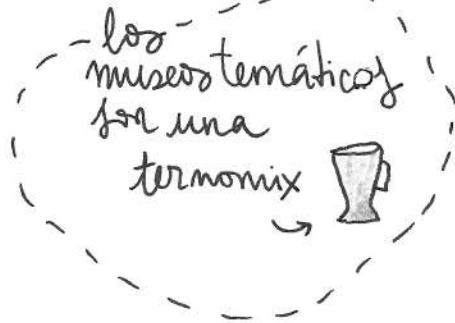 los
museos temáticos
son una
ternomix